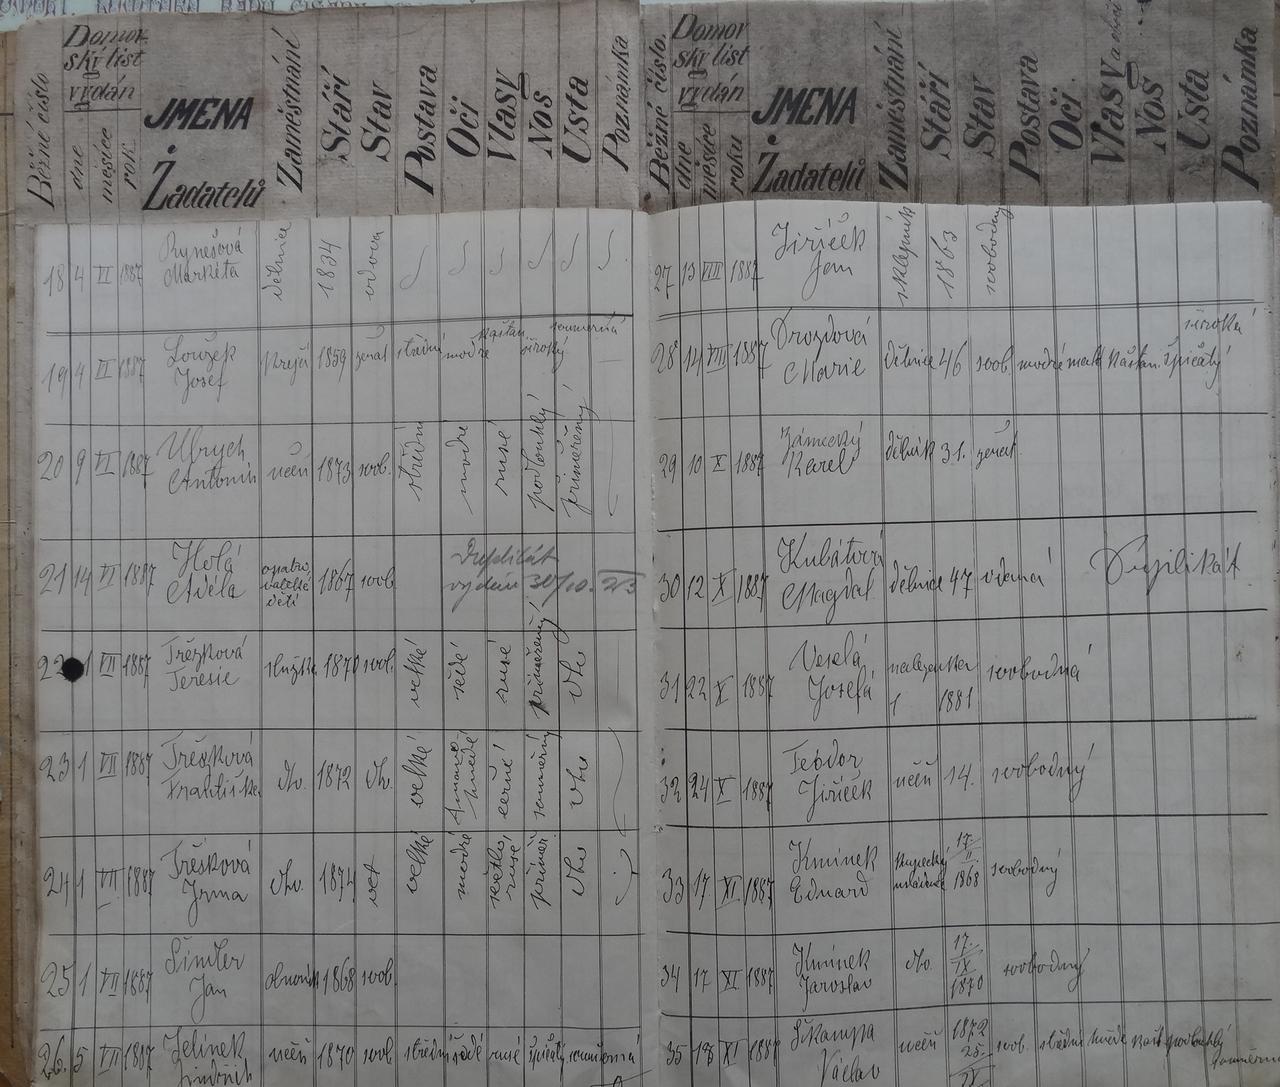 Běžné číslo Domovský list vydán dne měsíce rok JMÉNA Žadatelů Zaměstnání Stáří Stav Postava Oči Vlasy Nos Ústa Poznámka
18 4 VI 1887 Rynešová Markéta dělnice 1834 vdova
19 4 VI 1887 Loužek Josef krejčí 1859 ženat střední modré kaštan. široký souměrná
20 9 VI 1887 Ubrych Antonín učeň 1873 svob. střídní modré rusé podlouhlý přiměřený
21 14 VI 1887 Holá Adéla 1867 svob. Duplikát vydán 30/10.
22 1 VII 1887 Teresie služka 1870 svob. velké šedé rusé přiměřený dto
23 1 VII 1887 Františka dto. 1872 dto. velké hnědé černé souměrný dto
24 1 VII 1887 Třešková Irma dto. 1874 velké modré světlo rusé přiměř. dto
25 1 VII 1887 Šimler Jan 1868 svob.
26. 5 VII 1887 Jelínek Jindřich učeň 1870 svob. střední šedé rusé špičatý souměrná
Běžné číslo. Domovský list vydán dne měsíce roku JMÉNA Žadatelů Zaměstnání Stáří Stav Postava Oči Vlasy Nos Ústa Poznámka
27 13 VIII 1887 Jiříček Jan sklepník 1863 svobodný
28 14 VIII 1887 Drozdová Marie dělnice 46 svob. modré kaštan. špičatý široká
29 10 X 1887 Zámecký Karel dělník 31. ženat
30 12 X 1887 Kubátová Magdal. dělnice 47 vdaná Duplikát
31 22 X 1887 Veselá Josefa 1881 svobodná
32 24 X 1887 Teodor Jiříček učeň 14. svobodný
33 17 XI 1887 Kminek Eduard kupecký mládenec 17. II 1868 svobodný
34 17 XI 1887 Kminek Jaroslav dto. 17. IX 1870 svobodný
35 18 XI 1887 Škampa Václav učeň 1872 25. svob. střední hnědé podlouhlý souměrná